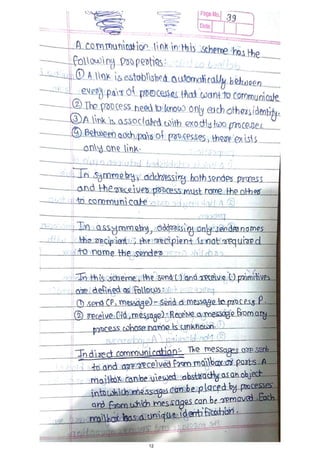 Page No. 39
Date
A communication link in this scheme has the
following properties:
① A link is established automatically between
every pair of processes that want to communicate
② The process need to know only each others identity.
③ A link is associated with exactly two processes
④ Between each pair of processes, there exists
only one link.
In symmetry, addressing both sender process
and the receiver process must name the other
to communicate
In assymmetry, addressing only sender names
the recipient; the recipient is not required
to name the sender
In this scheme, the send () and receive () primitives
are defined as follows
① send (P, message) - send a message to process P.
② receive (id, message) - Receive a message from any
process whose name is unknown
Indirect communication:- The messages are sent
to and are received from mailbox or ports. A
mailbox can be viewed abstractly as an object
into which messages can be placed by processes
and from which messages can be removed. Each
mailbox has a unique identification.
12